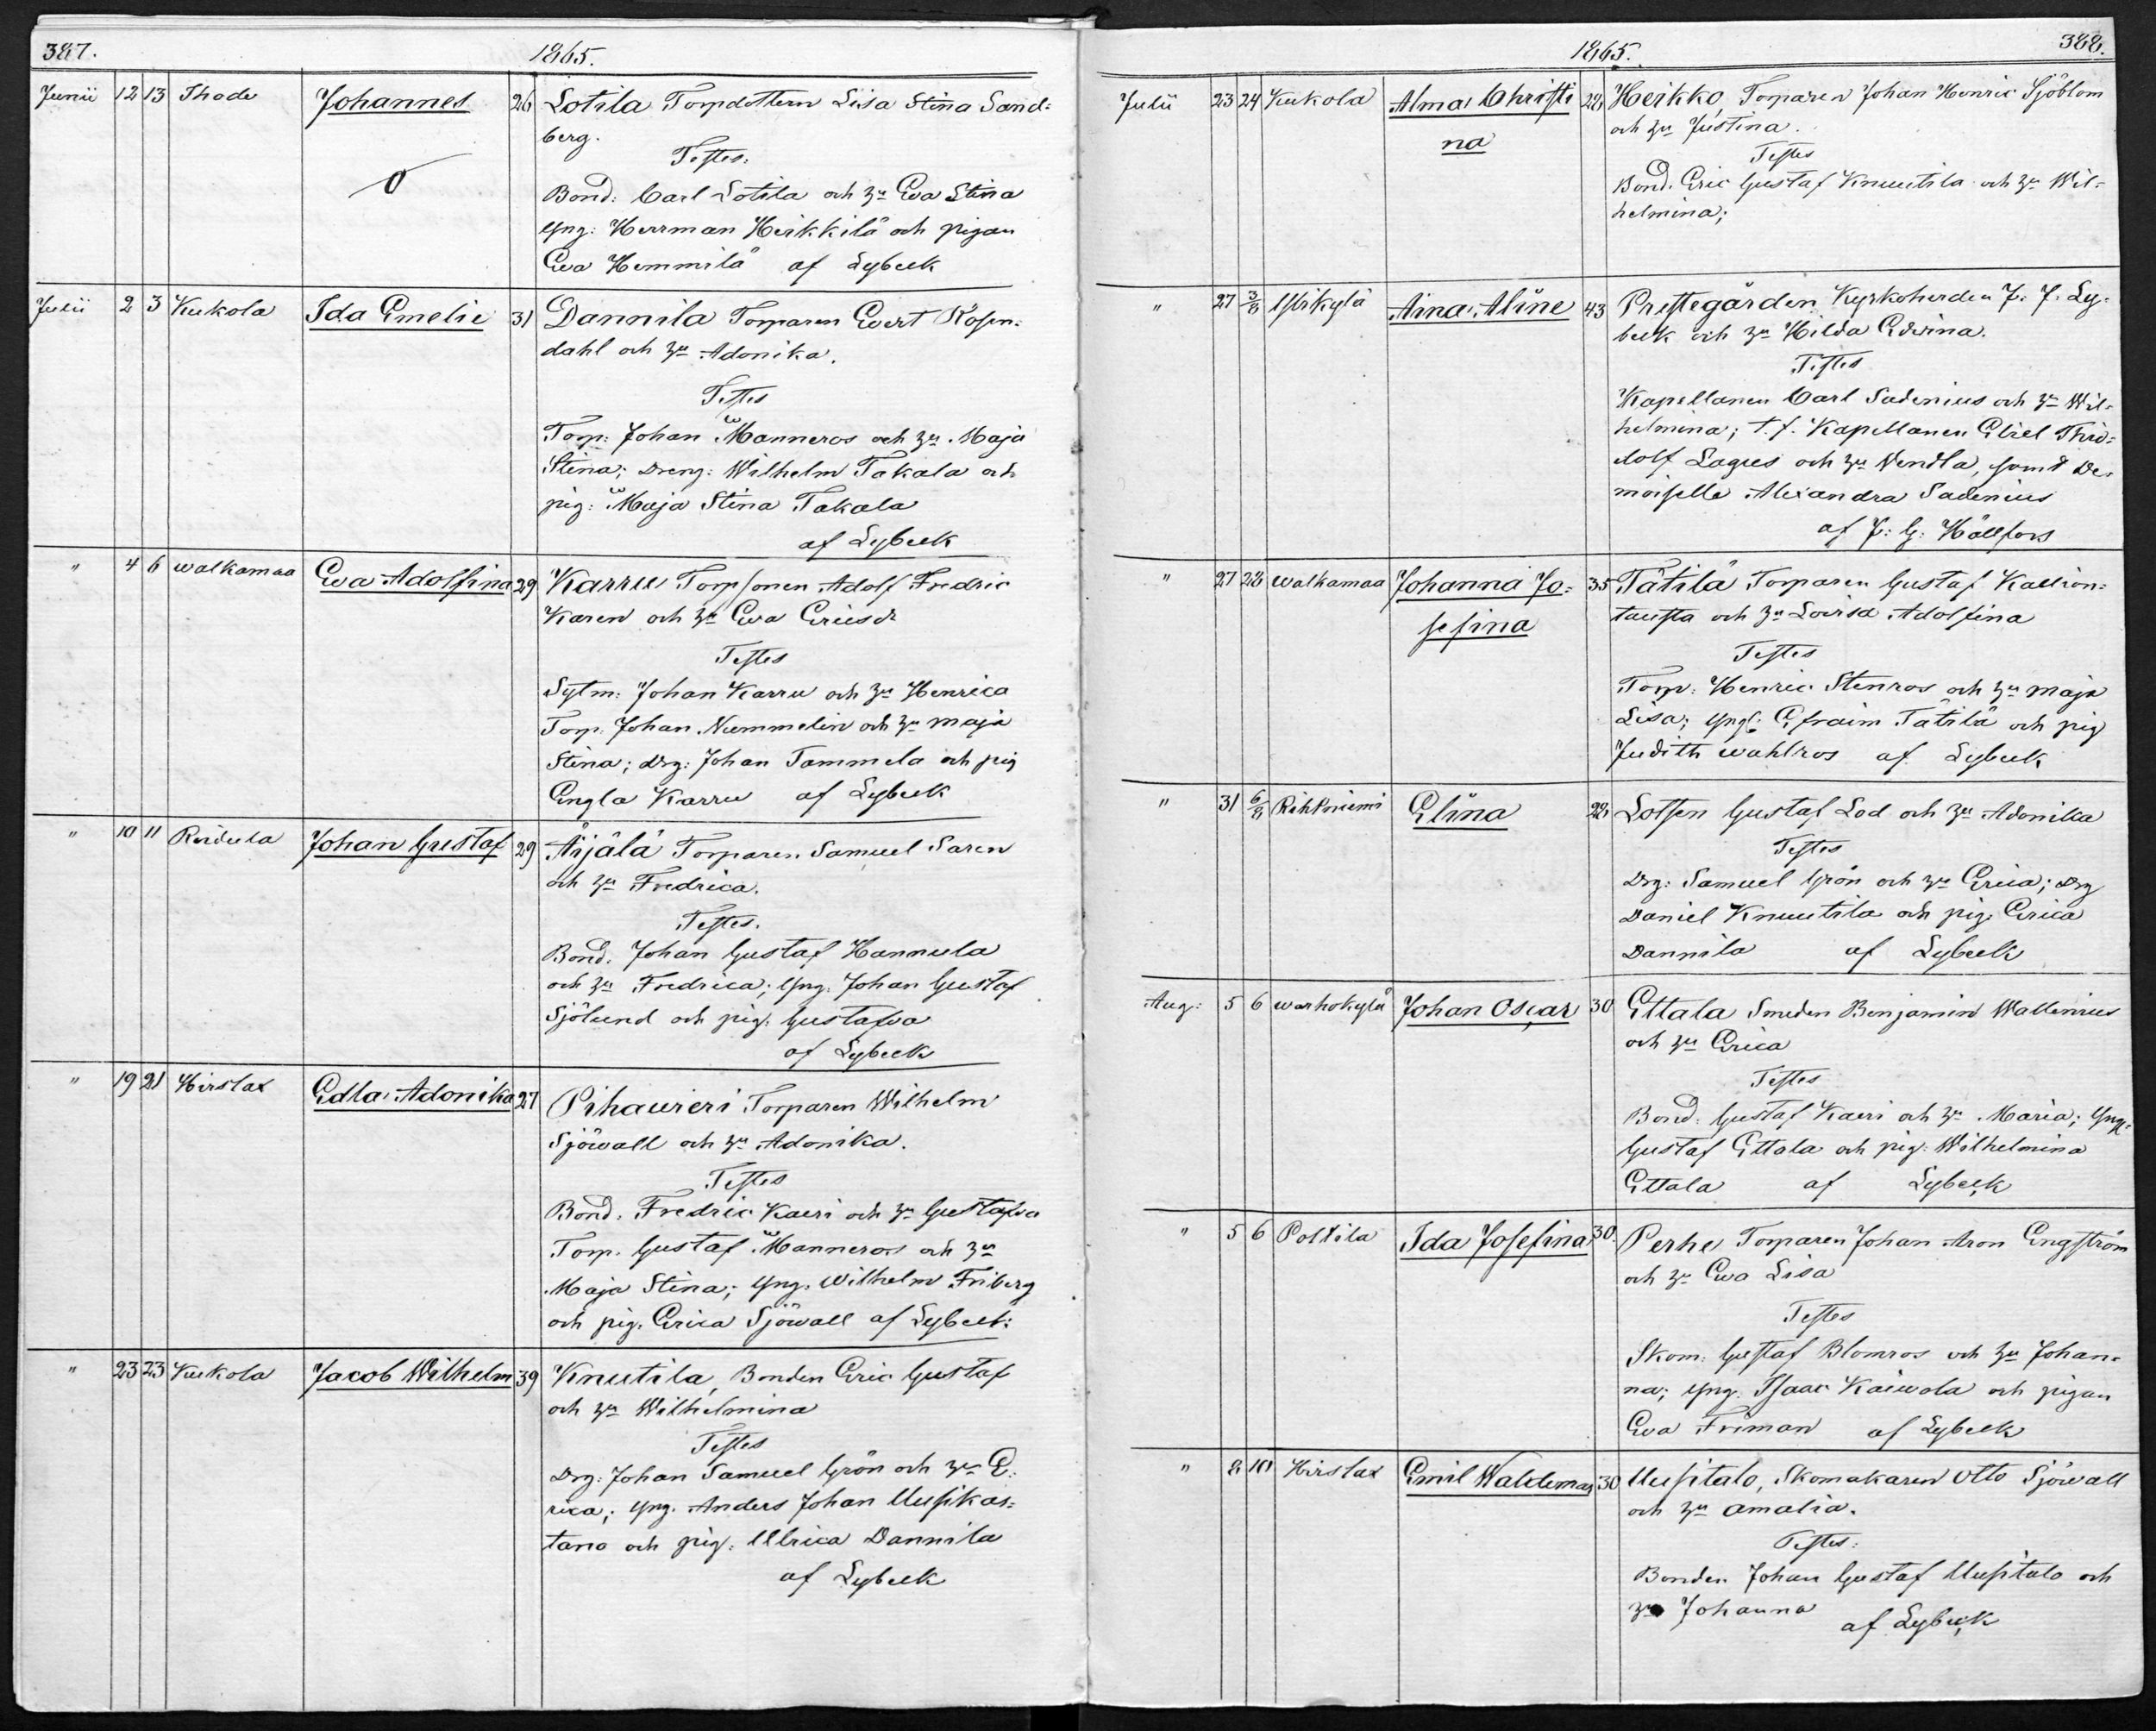 387.
1865.
Junii 12 13 Thode Johannes 26 Lotila Torpdottern Liisa Stina Sand=
berg.
Testes.
Bond: Carl Lotila och hu Eva Stina
yng: Herrman Heikkilä och pigan
Eva Hemmilä af Lybeck
Julii 2 3 Kukola Ida Emelie 31 Dannila Torparen Evert Rosen=
dahl och hu Adonika.
Testes
Torp: Johan Manneros och hu Maja
Stina; Dreng: Wilhelm Takala och
pig: Maja Stina Takala
af Lybeck
" 4 6 walkamaa Eva Adolfina 29 Karru Torpsonen Adolf Fredric
Karen och hu Eva Ericsdr
Testes
Sytm: Johan Karru och hu Henrica
Torp. Johan Nummelin och hu Maja
Stina; drg: Johan Tammela och pig
Engla Karru af Lybeck
" 10 11 Reidula Johan Gustaf 29 Äijälä Torparen Samuel Saren
och hu Fredrica.
Testes.
Bond. Johan Gustaf Hannula
och hu Fredrica; yng. Johan Gustaf
Sjölund och pig. Gustafva
af Lybeck
" 19 21 Hirslax Edla Adonika 27 Pihaureri Torparen Wilhelm
Sjöwall och hu Adonika.
Testes
Bond. Fredric Kaeri och hu Gustafva
Torp. Gustaf Manneros och hu
Maja Stina; yng. Wilhelm Friberg
och pig. Erica Sjöwall af Lybeck:
" 23 23 Kukola Jacob Wilhelm 39 Knutila, Bonden Eric Gustaf
och hu Wilhelmina
Testes
Drg: Johan Samuel Grön och hu E=
rica; yng. Anders Johan Uusikar=
tano och pig: Ulrica Dannila
af Lybeck
1865.
388.
Julii 23 24 Kukola Alma Christi 28 Heikko, Torparen Johan Henric Sjöblom
na
och hu Justina.
Testes
Bond. Eric Gustaf Knuutila och hu Wil=
helmina;
" 27 3/8 Ylikylä Aina Aline 43 Prestegården Kyrkoherden J. F. Ly=
beck och hu Hilda Edvina.
Testes
Kapellanen Carl Sadenius och hu Wil=
helmina; t. f. Kapellanen Eliel Thio=
dolf Lagus och hu Vendla, samt De=
moiselle Alexandra Sadenius
af F: G: Hällfors
" 27 28 walkamaa Johanna Jo= 35 Tätilä Torparen Gustaf Kallion=
sefina
tausta och hu Lovisa Adolfina
Testes
Torp: Henric Stenros och hu Maja
Lisa; yngl: Efraim Tätilä och pig
Judith Wahlros af Lybeck
" 31 6/8 Rihtniemi Elina 28 Lotsen Gustaf Lod och hu Adonika
Testes
Drg: Samuel Grön och hu Erica; Drg
Daniel Knuutila och pig. Erica
Dannila af Lybeck
Aug: 5 6 warhokylä Johan Oscar 30 Ettala Smeden Benjamin Wallenius
och hu Erica
Testes
Bond. Gustaf Kaeri och hu Maria; yngl:
Gustaf Ettala och pig: Wilhelmina
Ettala af Lybeck
" 5 6 Polttila Ida Josefina 30. Perhe, Torparen Johan Aron Engström
och hu Eva Lisa
Testes
Skom: Gustaf Blomros och hu Johan=
na; yng. Isaac Kaiwola och pigan
Eva Friman af Lybeck
" 8 10 Hirslax Emil Waldemar 30 Uusitalo, Skomakaren Otto Sjöwall
och hu Amalia.
Testes:
Bonden Johan Gustaf Uusitalo och
hu Johanna
af Lybeck